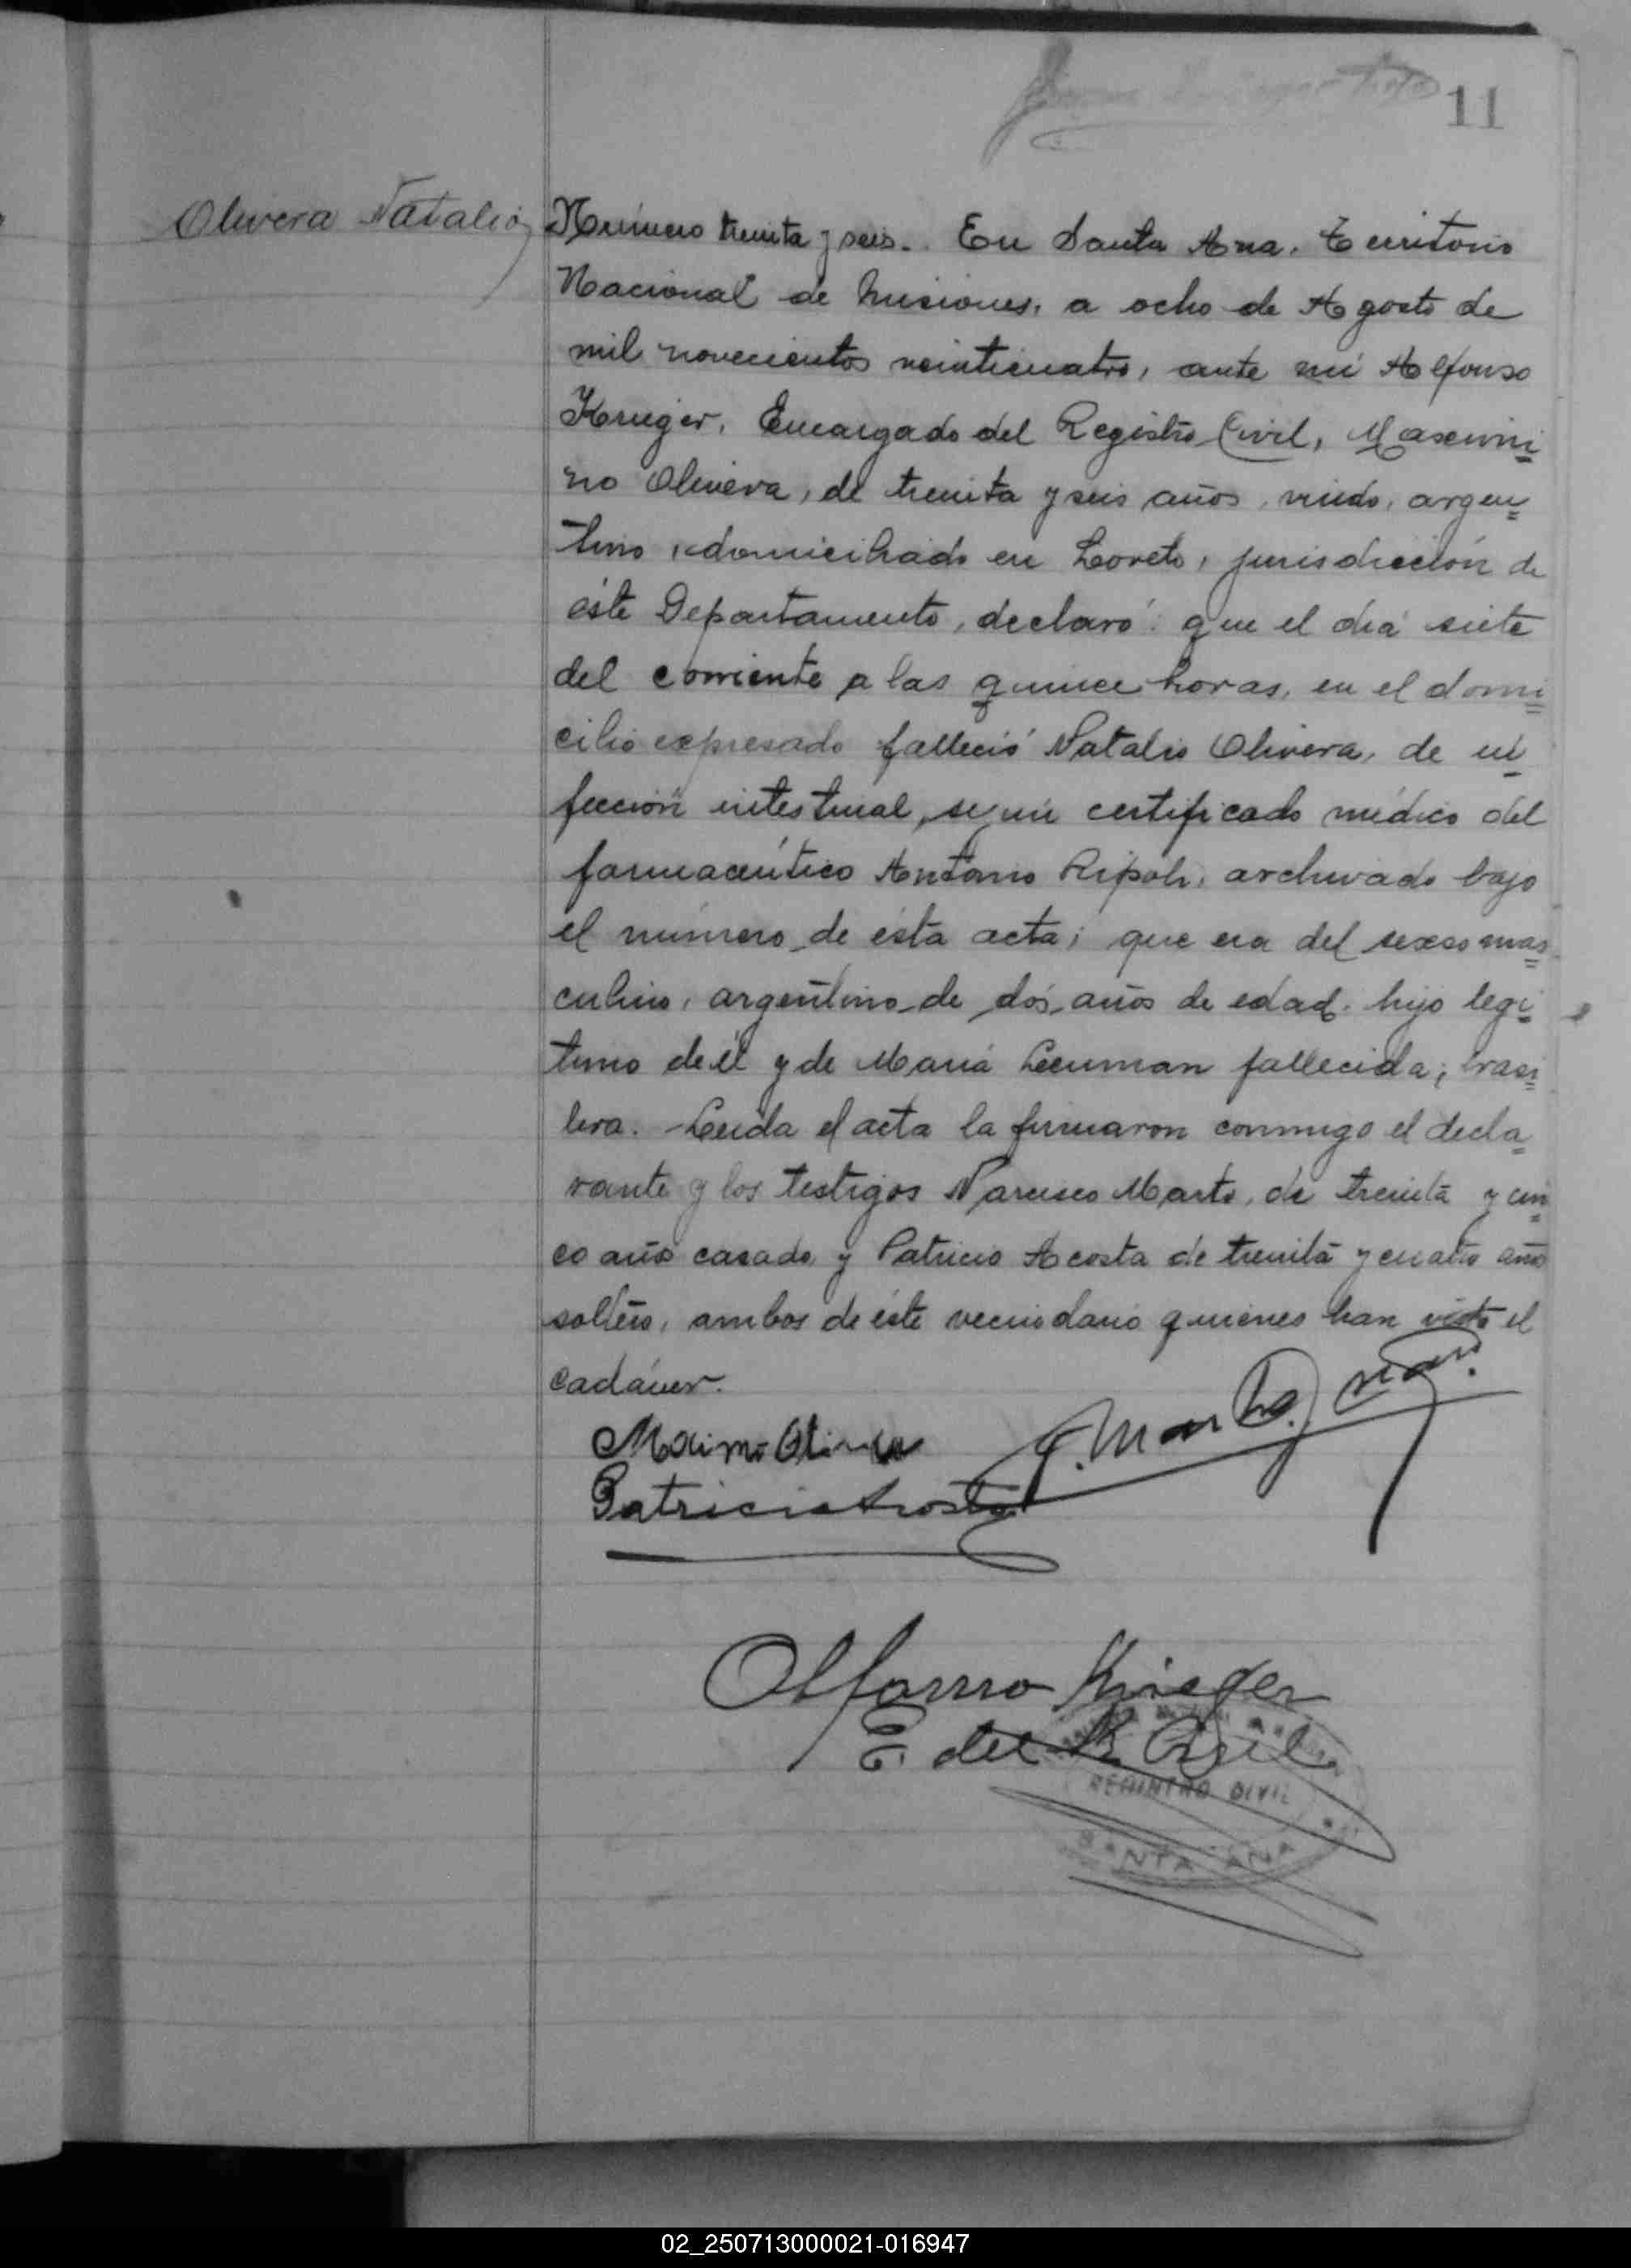 11
Olivera Natalio
Número treinta y seis.. En Santa Ana, Territorio
Nacional de Misiones, a ocho de Agosto de
mil novecientos veinticuatro, ante mí Alfonso
Kruger, Encargado del Registro Civil, Maximi
no Olivera, de treinta y seis años, viudo, argen
tino, domiciliado en Loreto, jurisdicción de
éste Departamento, declaró: que el día siete
del corriente a las quince horas, en el domi
cilio expresado falleció Natalio Olivera, de in
fección intestinal, según certificado médico del
farmacéutico Antonio Ripoli, archivado bajo
el número de ésta acta; que era del sexso mas
culino, argentino de dós años de edad. hijo legi
timo de él y de María fallecida; brasi
lera. Leída el acta la firmaron conmigo el decla
rante y los testigos Narciso Marto, de treinta y cin
co años casado y Patricio Acosta de treinta y cuatro años
soltero, ambos de éste vecindario quienes han visto el
cadáver.
Maximo Olivera
Patricio Acosta
Alfonso Krieger
E. del R. Civil
REGISTRO CIVIL
SANTA ANA
02_250713000021-016947